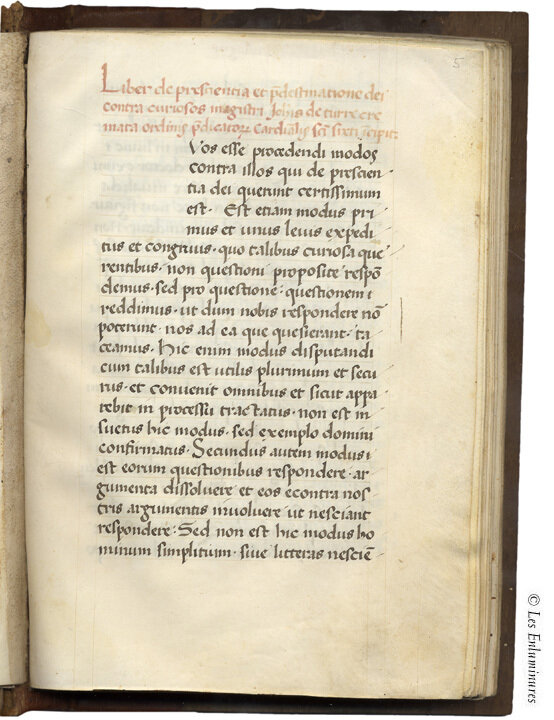 5
Liber de prescientia et p̄destinatione dei
contra curiosos magistri Johis de turre cre
mata ordinis p̄dicatoꝝ Cardīalis sc̄ti sixti īcipit
Uos esse procedendi modos
contra illos qui de prescien
tia dei querunt certissimum
est. Est etiam modus pri
mus et unus levis expedi
tus et congruus. quo talibus curiosa que
rentibus. non questioni proposite respō
demus. sed pro questione. questionem i
reddimus. ut dum nobis respondere nō
poterunt. nos ad ea que quesierant. ta
ceamus. Hic enim modus disputandi
cum talibus est utilis plurimum et secu
rus. et convenit omnibus et sicut appa
rebit in processu tractatus. non est in
suetus hic modus. sed exemplo domini
confirmatus. Secundus autem modus i
est eorum questionibus respondere. ar
gumenta dissolvere et eos econtra nos
tris argumentis involvere ut nesciant
respondere. Sed non est hic modus ho
minum simplitium. sive litteras nesciē
© Les Enluminures